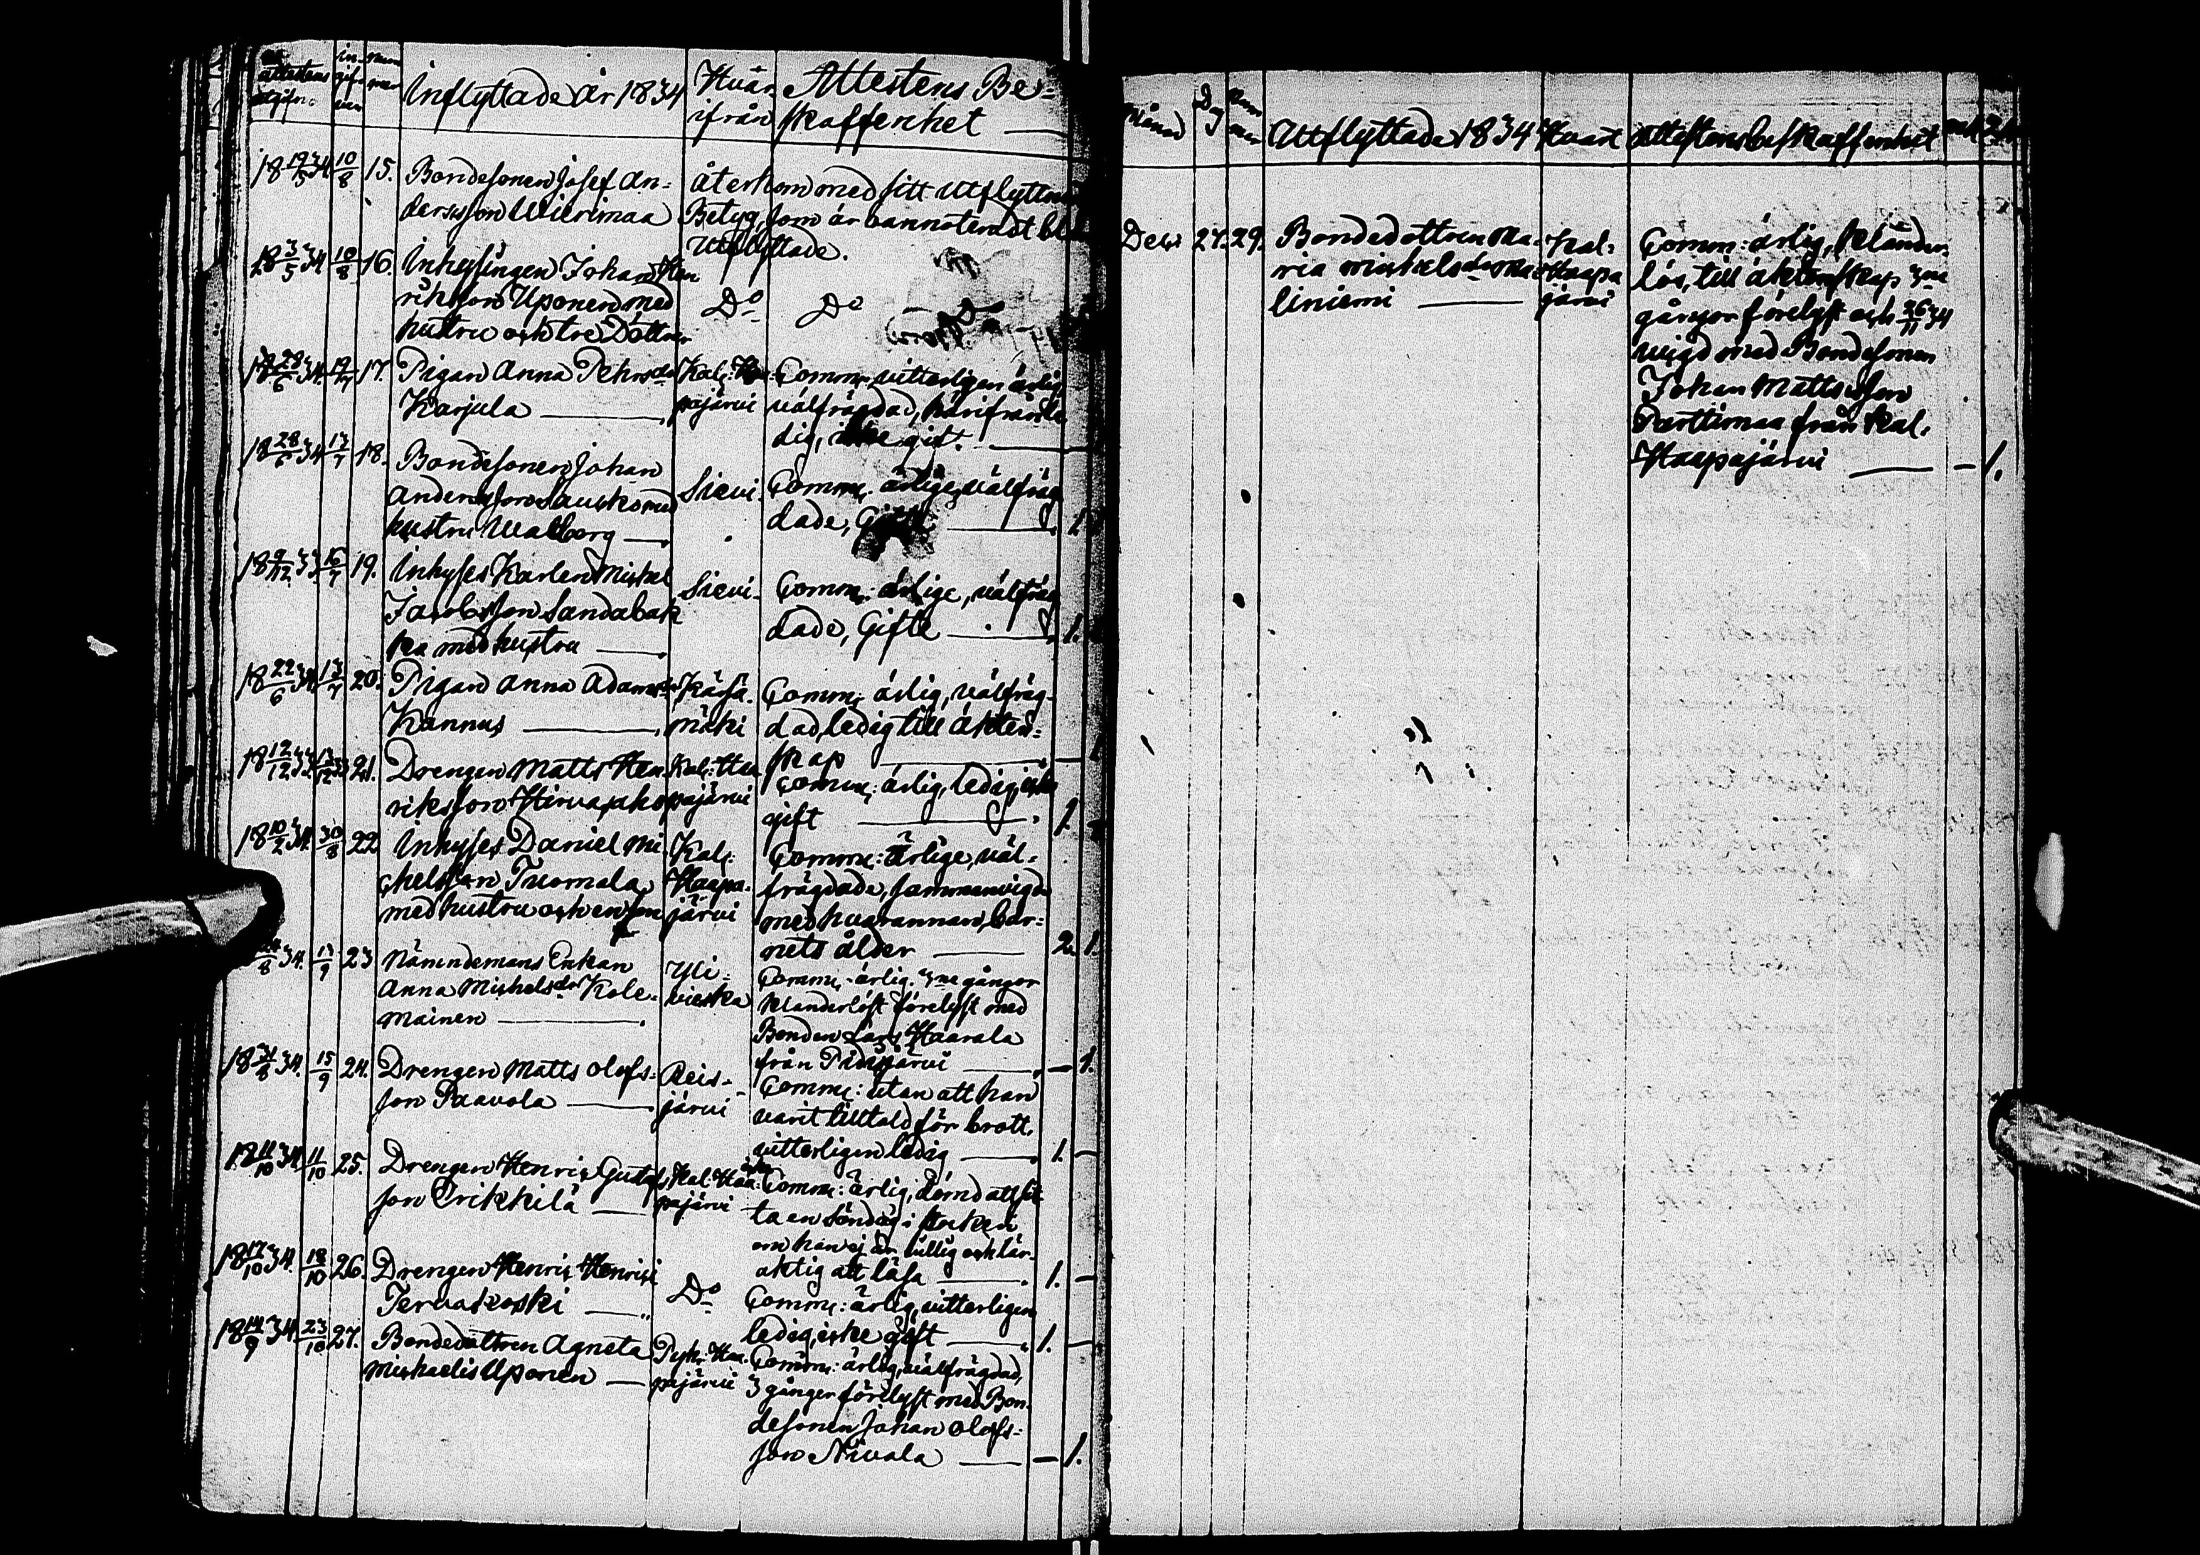 Attestens utgifv: in-gifven Num-mer Inflyttade år 1834 Hvar-ifrån Attestens Be-
skaffenhet
18 19/5 34 10/8 15. Bondesonen Josef An-
dersson Wierimaa
Återkom med sitt utflyttnings
Betyg, som är bannoteradt bland
utflyttade.
18 3/5 34 10/8 16. Inhysingen Johan Hen
riksson Uponen med
hustru och tre Döttrar
Do Do
18 28/6 34. 17. Pigan Anna Pehrsdr
Karjula
Kal: Haa-
pajärvi
Comm: vitterligen ärlig
välfrägdad, härifrån le
dig, icke gift.
18 28/6 34 13/7 18. Bondesonen Johan
Andersson Sauko med
hustru Walborg
Sievi.
Comm: ärlige, välfräg
dade, Gifte 1
18 9/12 33 16/7 19. Inhyses Karlen Michel
Jacobsson Sandabak
ka med hustru
Sievi.
Comm: ärlige, välfräg
dade, Gifte 1.
18 22/6 34. 13/7 20. Pigan Anna Adamsdr
Kannus
Kärsä-
mäki
Comm: ärlig, välfräg-
dad, ledig till äkten-
skap
18 12/12 33 13/12 33 21. Drengen Matts Hen
riksson Hirvasaho
Kal: Haa
pajärvi
Comm: ärlig, ledig, icke
gift 1.
18 10/2 34. 30/8 22 Inhyses Daniel Mi
chelsson Tuomala,
med hustru och en son
Kal:
Haapa-
järvi
Comm: ärlige, väl-
frägdade, sammanvigde
med hvarannan, bar-
nets ålder 2. 1.
/8 34. 13/9 23 Nämndemans Enkan
Anna Michelsdr Kole-
mainen
Yli-
vieska
Comm: ärlig. 3ne gånger
klanderlöst förelyst med
Bonden Lars Haarala
från Pidisjärvi 1.
18 31/8 34. 15/9 24. Drengen Matts Olofs-
son Paavola
Reis-
järvi
Comm: utan att han
varit tilltald för brott,
vitterligen ledig 1.
18 11/10 34. 11/10 25. Drengen Henric Gustafs
son Erikkilä
Kal: Haa-
pajärvi
Comm: ärlig, dömd att sit
ta en Söndag i stocken
om han ej är villig och lär-
aktig att läsa 1.
18 17/10 34. 18/10 26. Drengen Henric Henrici
Tervakoski
Do
Comm: ärlig, vitterligen
ledig, icke gift 1.
18 14/9 34. 23/10 27. Bondedottren Agneta
Michaelis Uponen
Pyh: Haa-
pajärvi
Comm: ärlig, välfrägdad,
3 gånger förelyst med Bon-
desonen Johan Olofs-
son Nivala 1.
Månad Dag Num mer Utflyttade 1834 Hvart Attestens beskaffenhet
Decr 27. 29. Bondedottren Ma-
ria Michelsdr Mat
liniemi
Kal-
Haapa
järvi
Comm: ärlig, klander
lös, till äktenskap 3ne
gångor förelyst och 26/11 34
vigd med Bondesonen
Johan Mattsson
Parttimaa från Kal.
Haapajärvi 1.